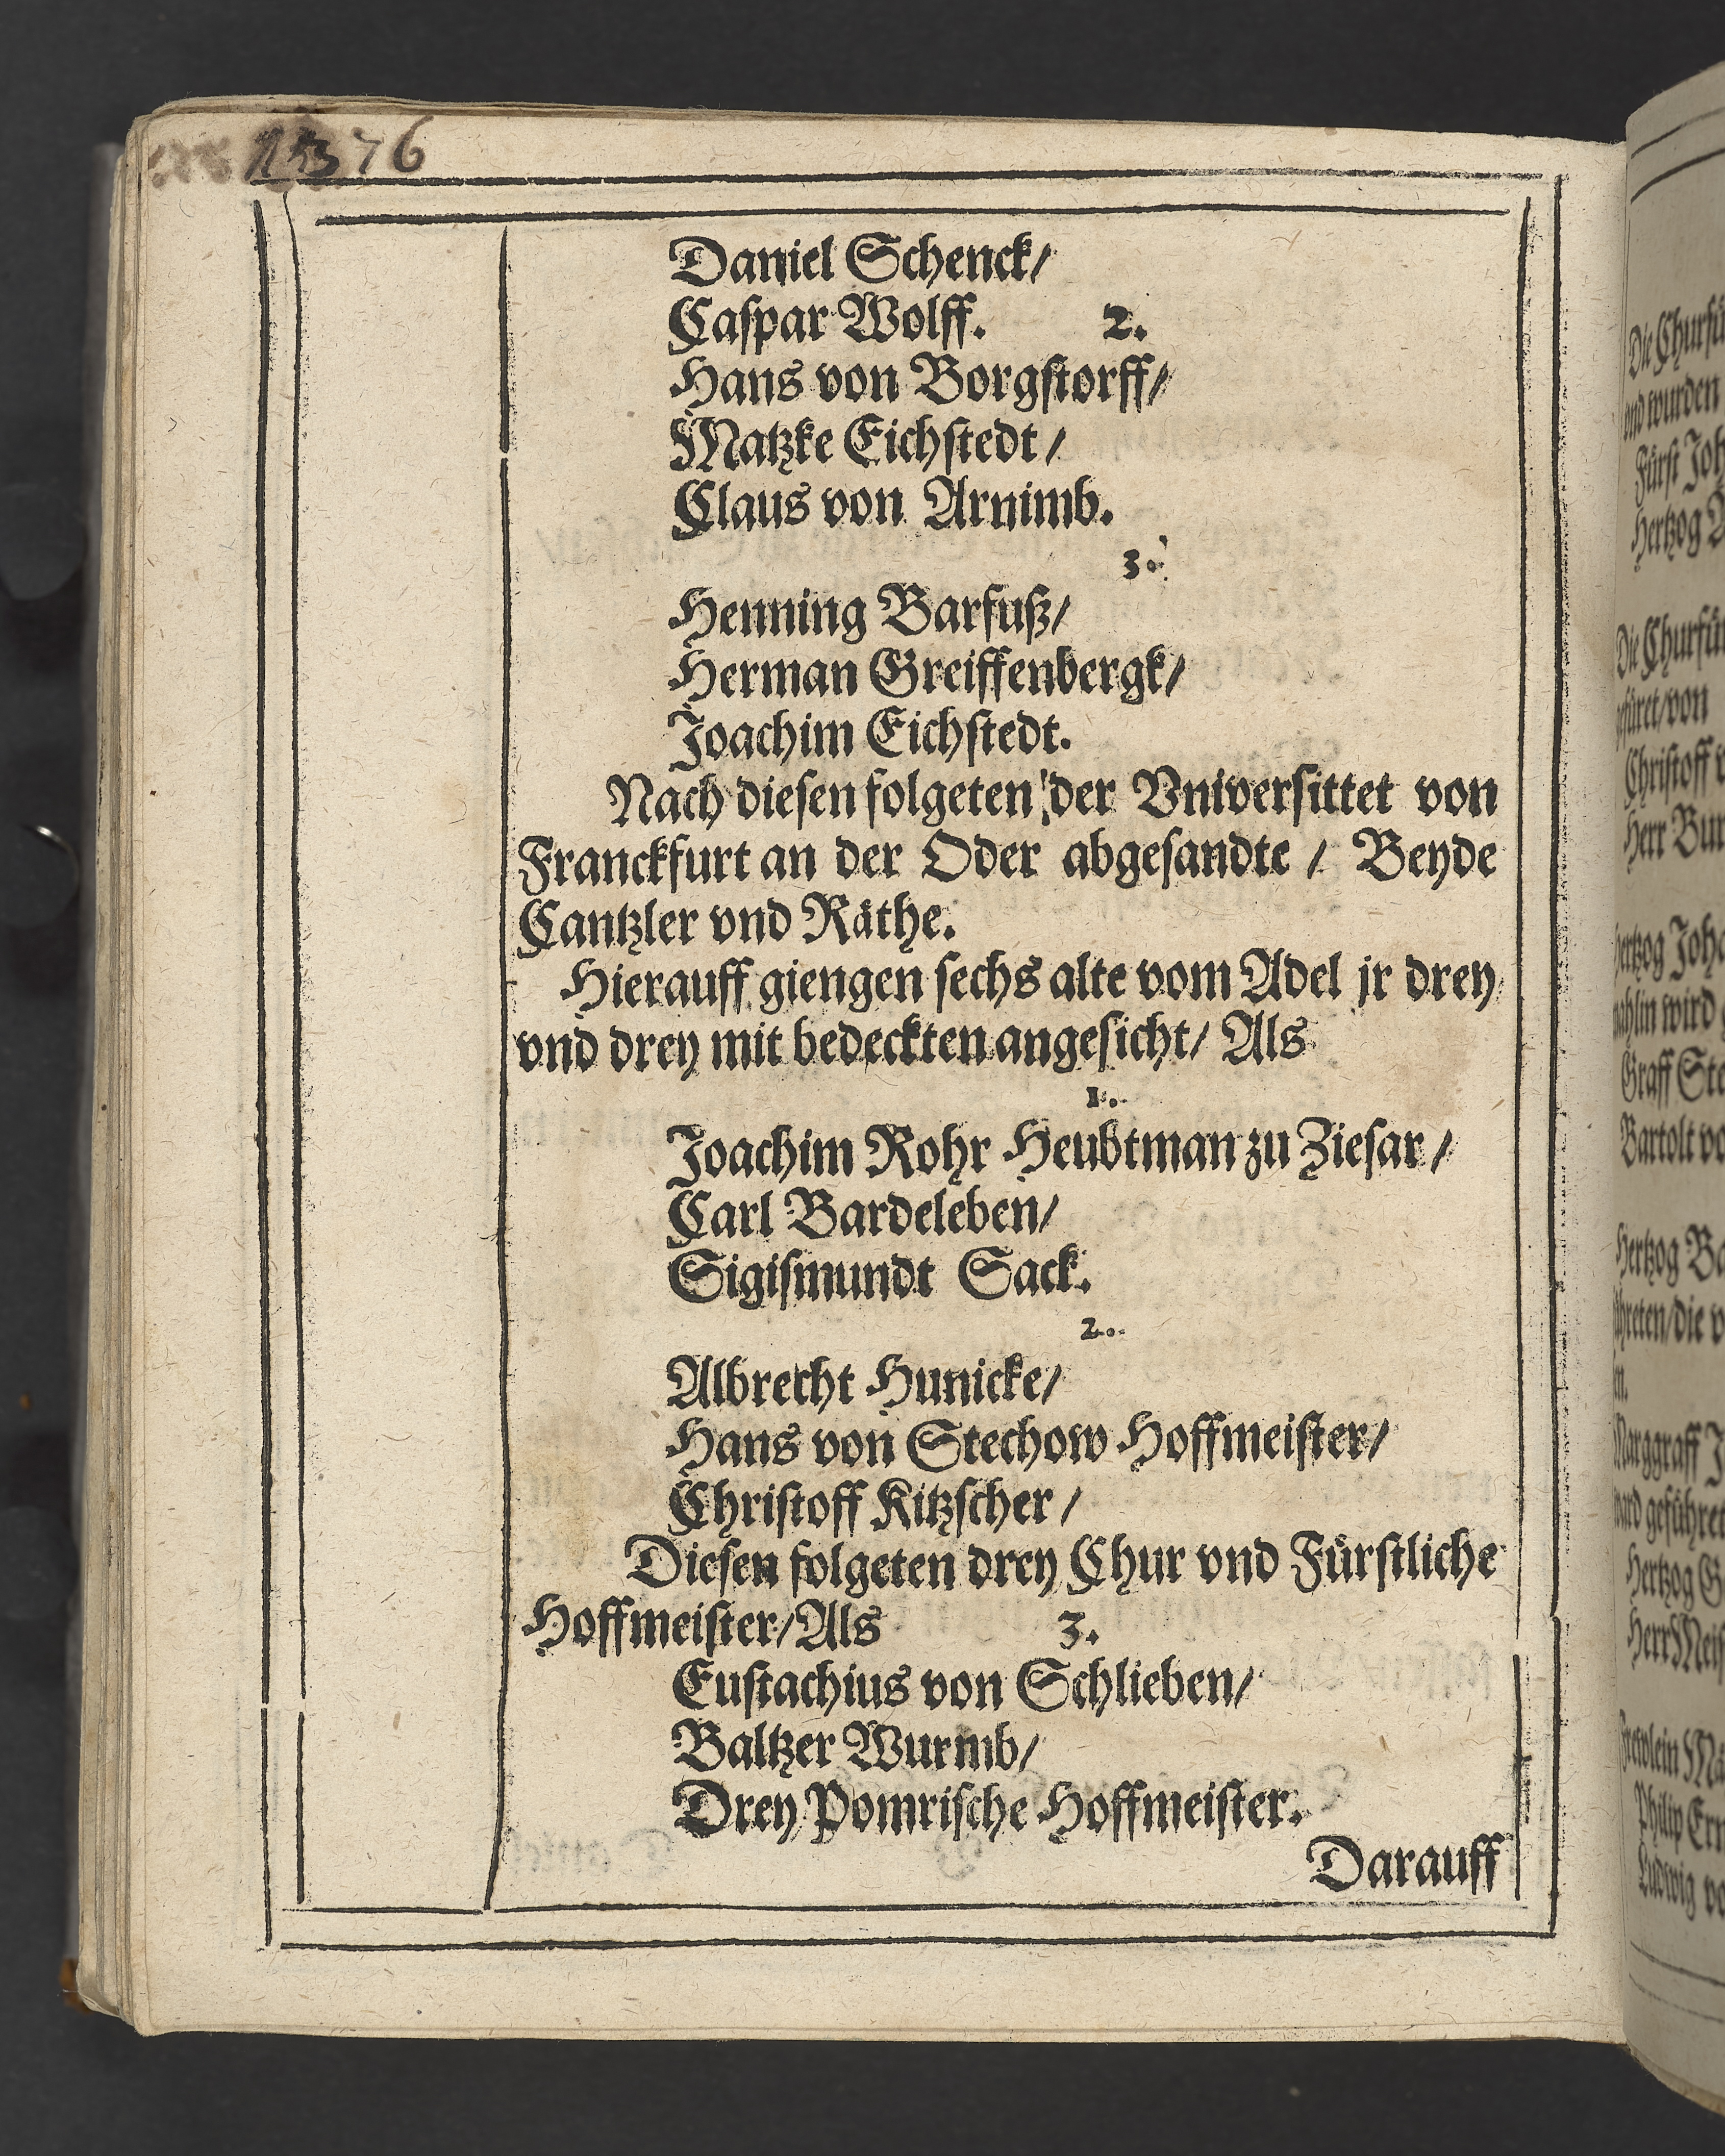 76
Daniel Schenck/
Caſpar Wolff. 2.
Hans von Borgſtorff/
Matzke Eichſtedt /
Claus von Arnimb.
3.
Henning Barfuß/
Herman Greiffenbergk/
Joachim Eichſtedt.
Nach dieſen folgeten der Vniverſittet von
Franckfurt an der Oder abgeſandte / Beyde
Cantzler vnd Räthe.
Hierauff giengen ſechs alte vom Adel jr drey
vnd drey mit bedeckten angeſicht/ Als
1.
Joachim Rohr Heubtman zu Zieſar /
Carl Bardeleben/
Sigiſmundt Sack.
2.
Albrecht Hunicke/
Hans von Stechow Hoffmeiſter/
Chriſtoff Kitzſcher /
Dieſen folgeten drey Chur vnd Fürſtliche
Hoffmeiſter/Als 3.
Euſtachius von Schlieben/
Baltzer Wurmb/
Drey Pomriſche Hoffmeiſter.
Darauff
Die
vnd wurden
Fürſt
Hertzog
Die
von
Chriſtoff
Herr
wird
Graff
Bartolt
Hertzog
die
Hertzog
Philip
Ludwig